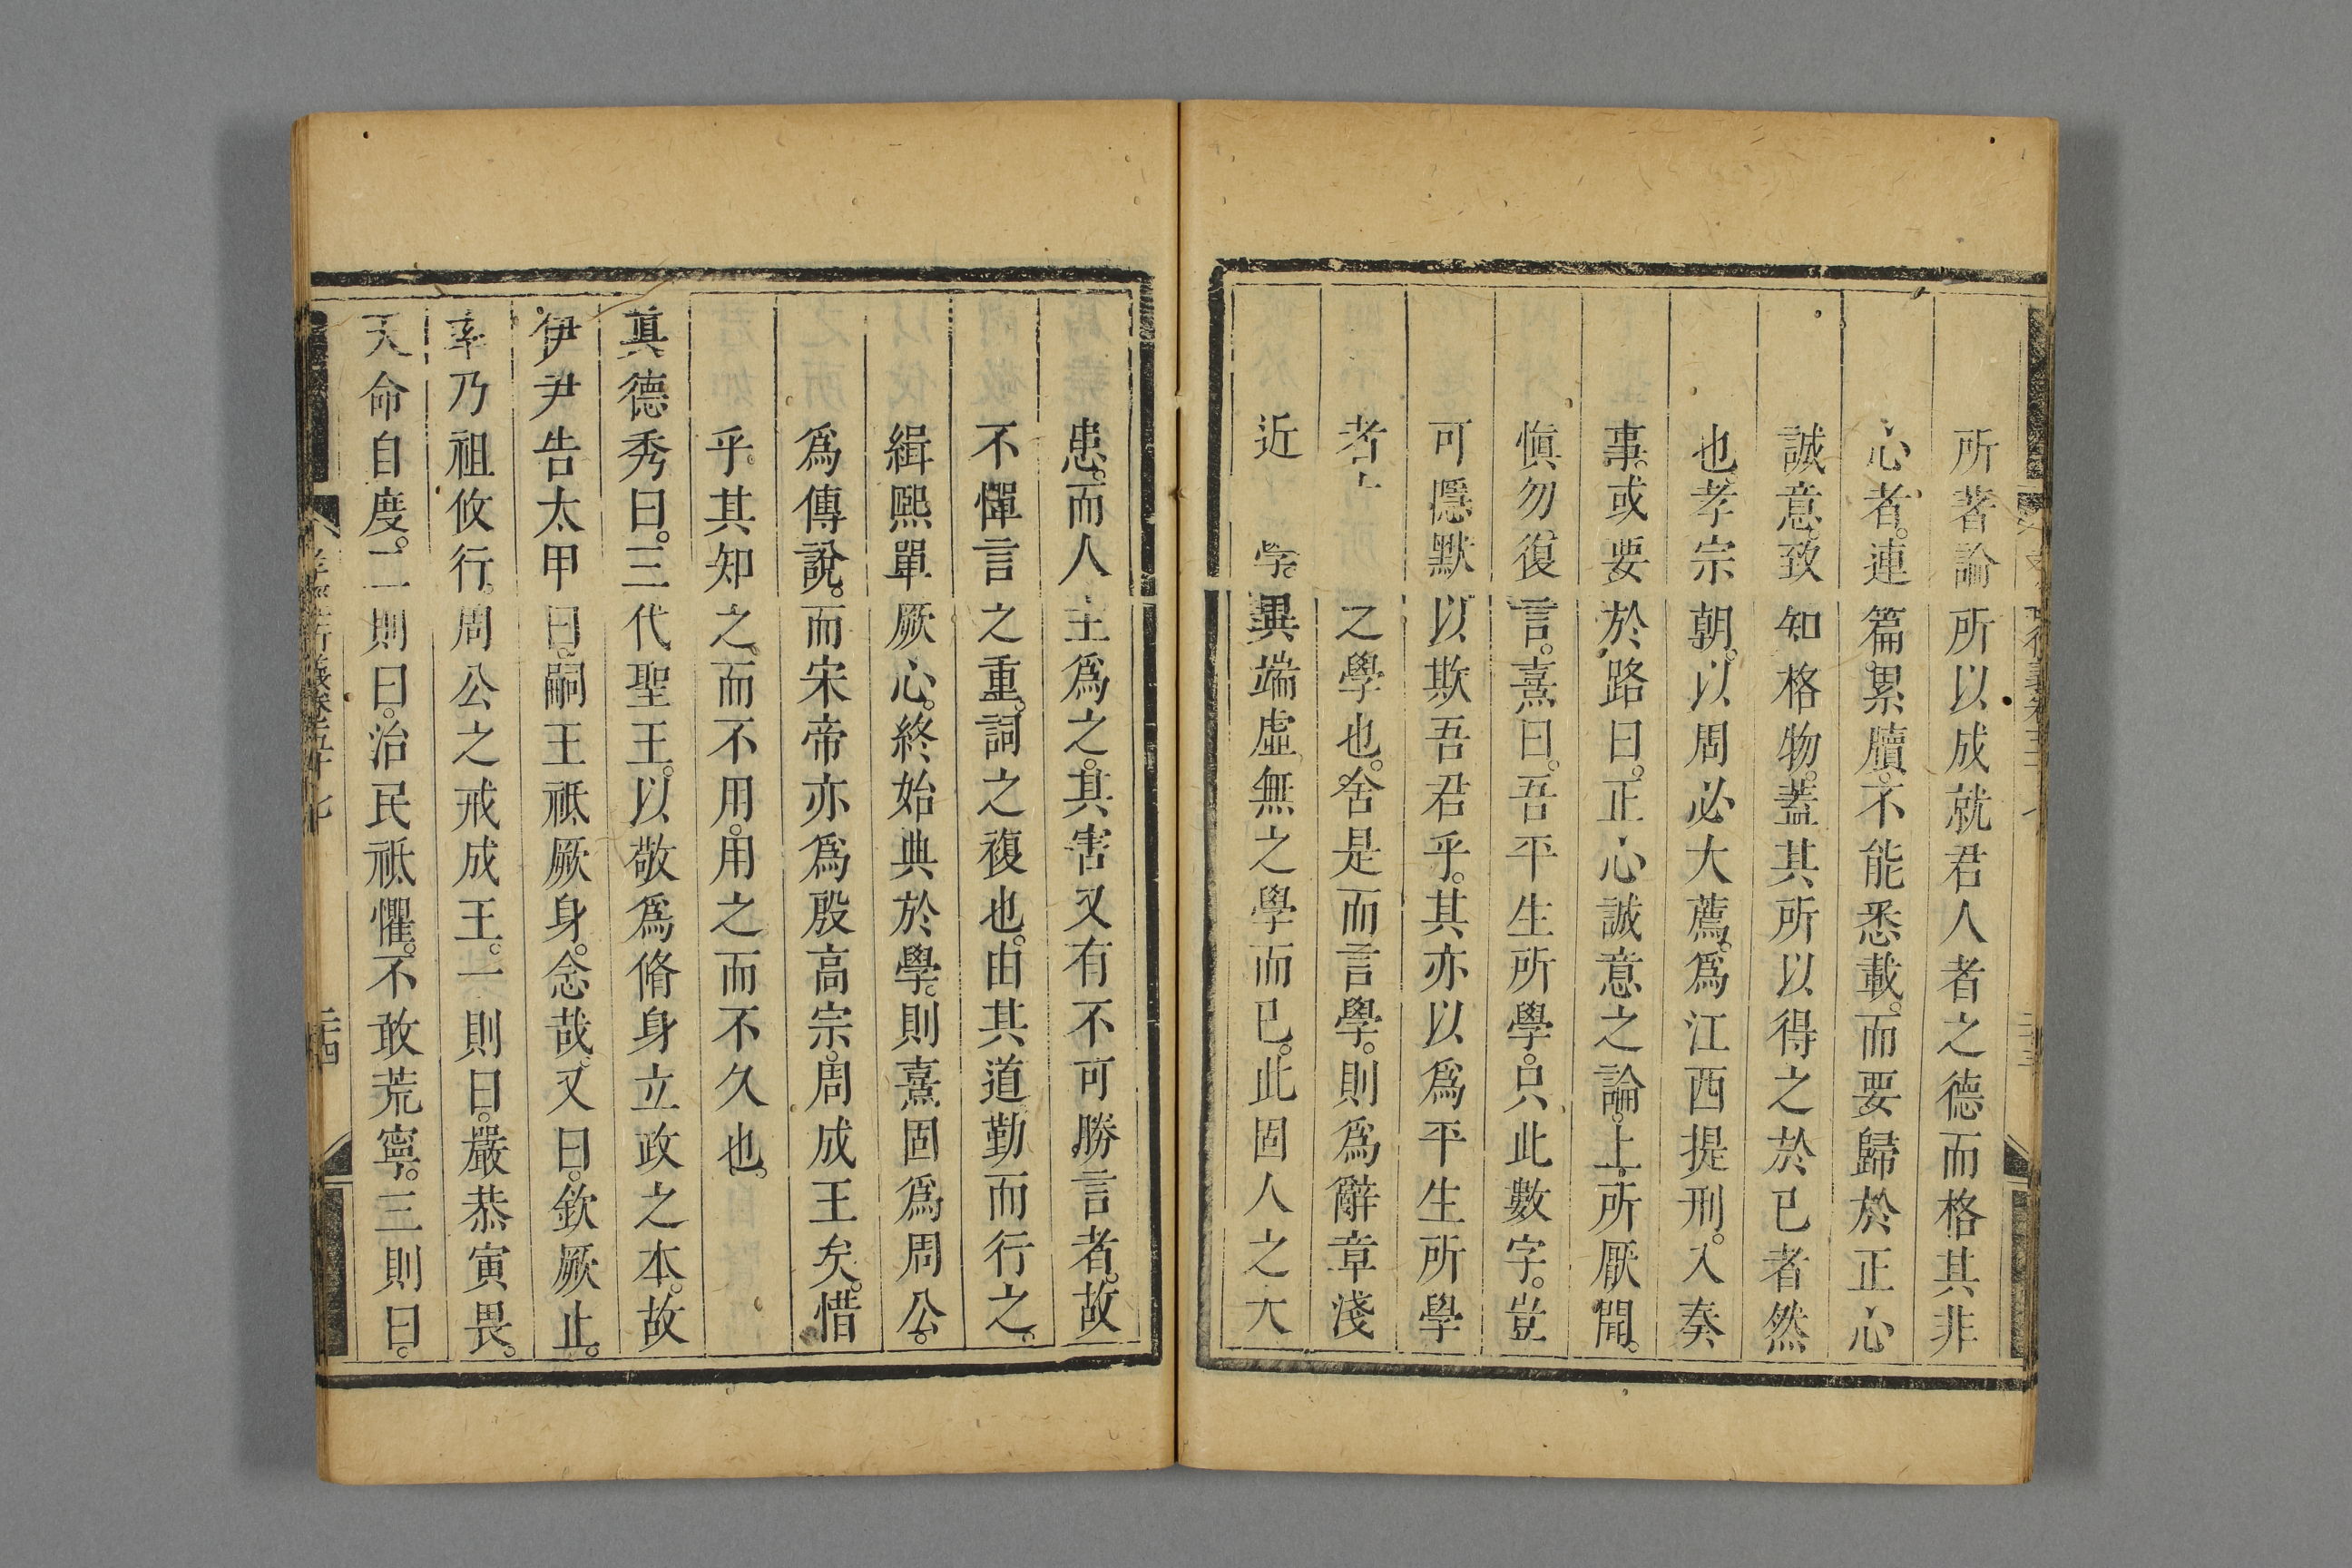 所著論所以成就君人者之德而格其非
心者。連篇累牘。不能悉載。而要歸於正心
誠意。致知格物。蓋其所以得之於已者然
也。孝宗朝。以周必大薦。爲江西提刑。入奏
事。或要於路曰。正心誠意之論。上所厭聞。
愼勿復言。熹曰。吾平生所學。只此數字。豈
可隱默以欺吾君乎。其亦以爲平生所學
者 之學也。舍是而言學。則爲辭章淺
近 學。異端虛無之學而已。此固人之大
患。而人主爲之。其害又有不可勝言者。故
不憚言之重。詞之複也。由其道勤而行之。
緝熙單厥心。終始典於學。則熹固爲周公。
爲傅說。而宋帝亦爲殷高宗。周成王矣。惜
乎。其知之而不用。用之而不久也。
真德秀曰。三代聖王。以敬爲脩身立政之本。故
伊尹告太甲曰。嗣王祗厥身。念哉。又曰。欽厥止。
率乃祖攸行。周公之戒成王。一則曰。嚴恭寅畏。
天命自度。二則曰。治民祗懼。不敢荒寧。三則曰。